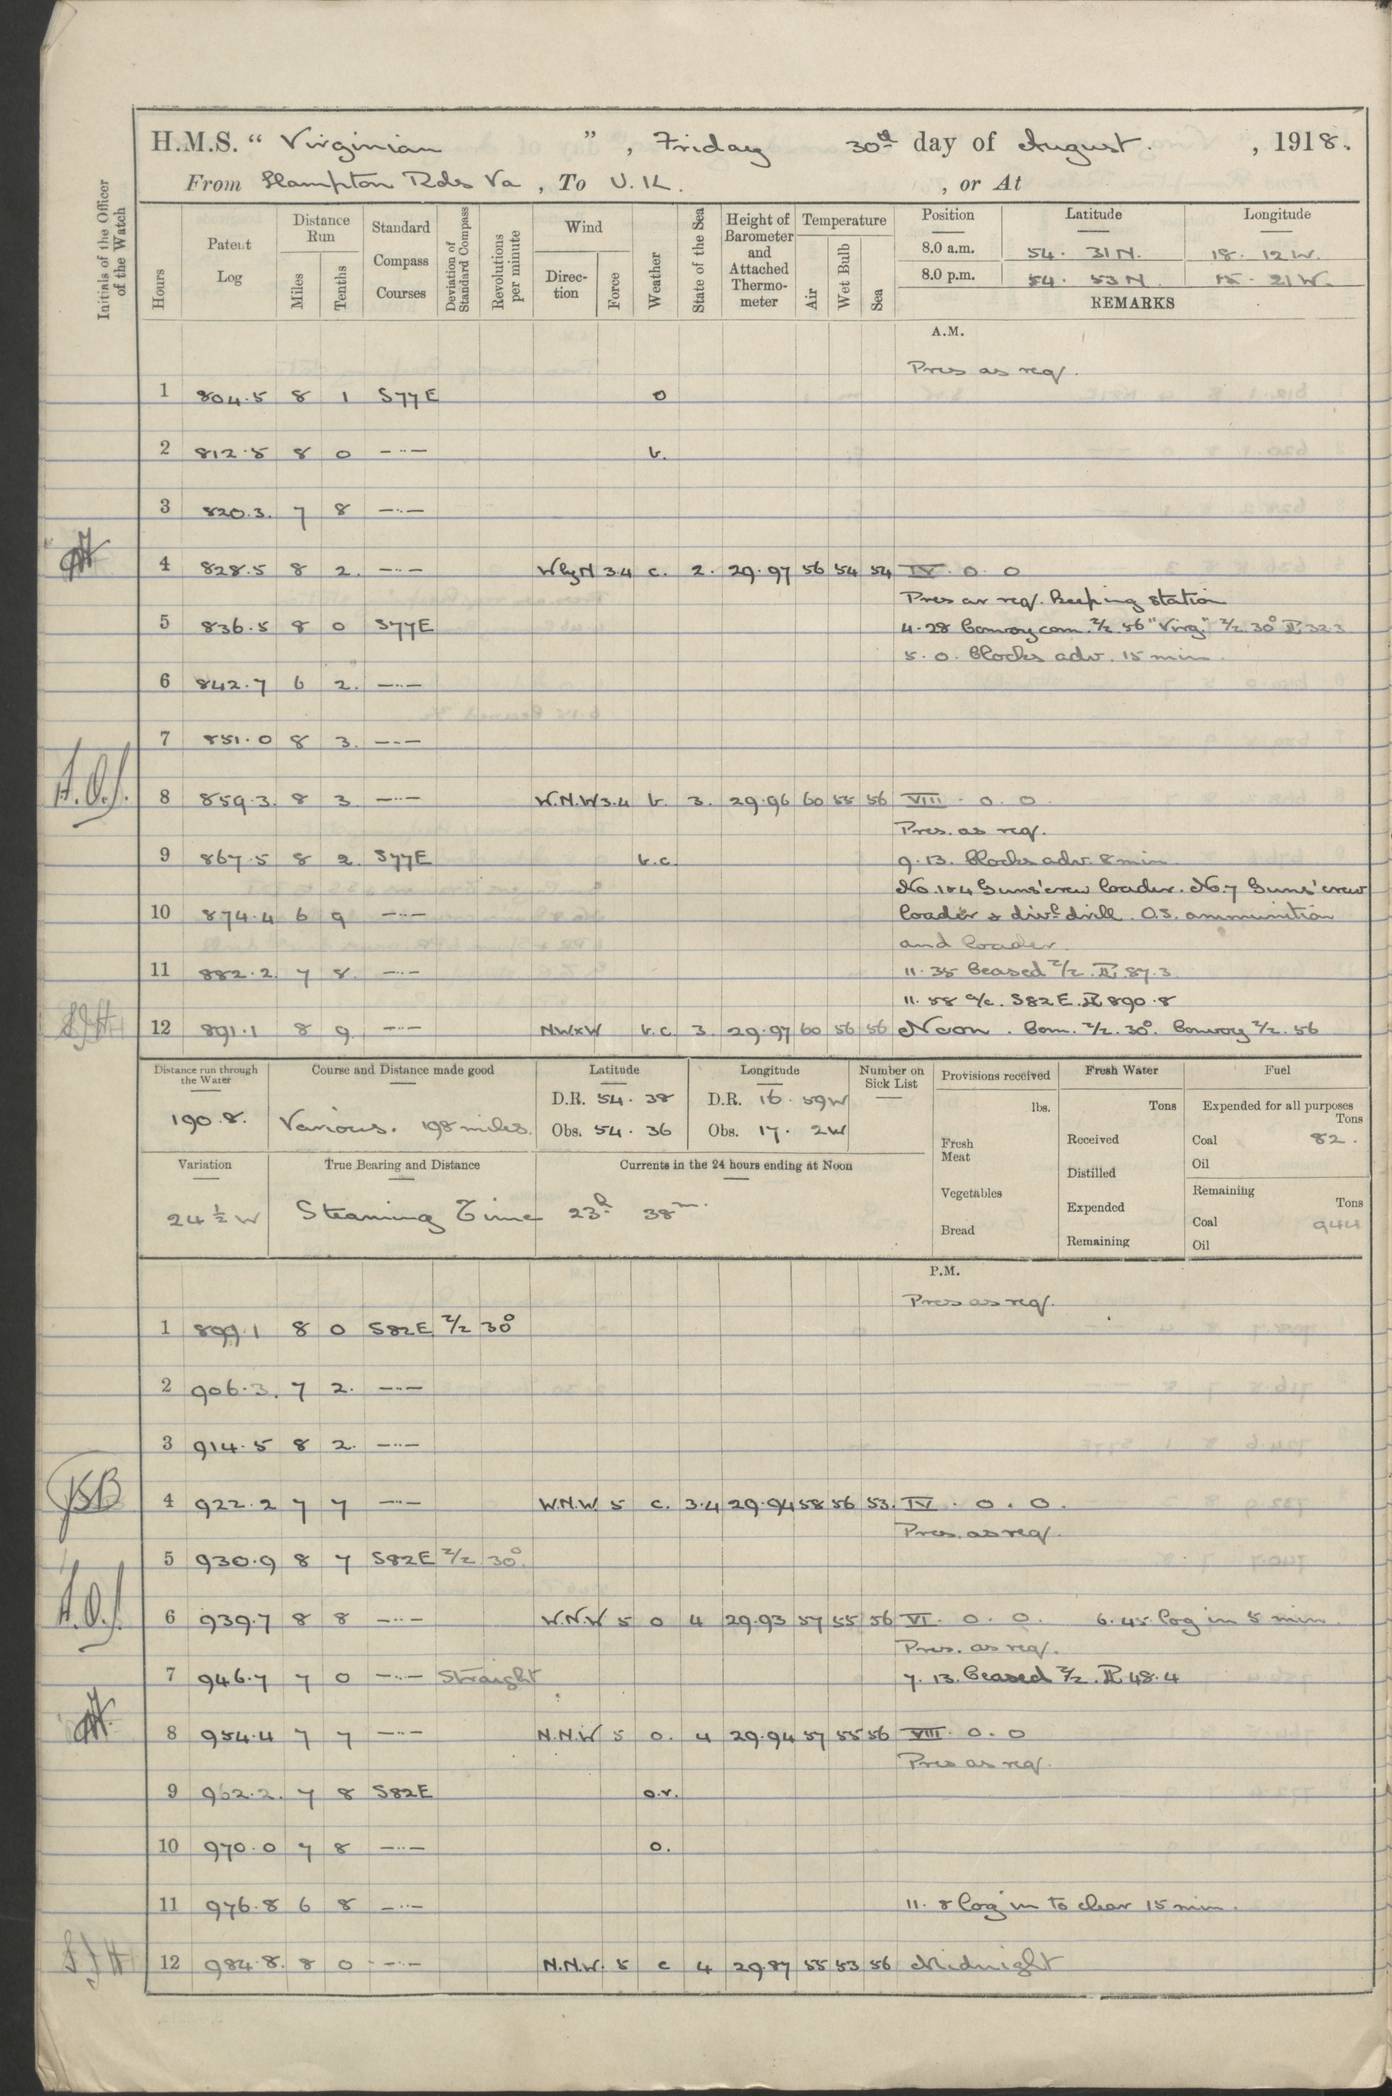 H.M.S. " Virginian ", Friday 30th day of August. , 1918.
From Hampton Rds Va , To U.K. , or At
Initials of the Officer of the Watch
Hours
Patent Log
Distance Run
Miles
Tenths
Standard Compass Courses
Deviation of Standard Compass
Revolutions per minute
Wind
Direction
Force
Weather
State of the Sea
Height of Barometer and Attached Thermometer
Temperature
Air
Wet Bulb
Sea
Position Latitude Longitude
8.0 a.m. 54. 31 N. 18. 12 W.
8.0 p.m. 54. 53 N. 15. 21 W.
REMARKS
A.M.
Pres as req/.
1 804.5 8 1 S77E o
2 812.5 8 0 -..- b.
3 820.3. 7 8 -..-
4 828.5 8 2. -..- WbyN 3.4 c. 2. 29.97 56 54 54 IV. 0. 0
Pres as req/. Keeping station
5 836.5 8 0 S77E 4.28 Convoy com. Z/z. 56 "Virg." Z/z. 30° P.L. 32.3
5. 0. Clocks adv. 15 min.
6 842.7 6 2. -..-
7 851.0 8 3. -..-
8 859.3. 8 3 -..- W.N.W 3.4 b. 3. 29.96 60 55 56 VIII. 0. 0.
Pres. as req/.
9 867.5 8 2. S77E b.c. 9.13. Clocks adv. 8 min
No. 1 & 4 Guns' crew loader. No. 7 Guns' crew
10 874.4 6 9 -..- loader & divl drill. O.S. ammunition
and loader.
11 882.2. 7 8. -..- 11.35 Ceased Z/z. P.L. 87.3
11.58 a/c. S82E. P.L. 890.8
12 891.1 8 9. -..- NWxW b.c. 3. 29.97 60 56 56 Noon. Com. Z/z. 30°. Convoy Z/z. 56
Distance run through the Water
190.8.
Course and Distance made good
Various. 198 miles.
Latitude
D.R. 54. 38
Obs. 54. 36
Longitude
D.R. 16. 59W
Obs. 17. 2W
Number on Sick List
Provisions received
lbs.
Fresh Meat
Vegetables
Bread
Fresh Water
Tons
Received
Distilled
Expended
Remaining
Fuel
Expended for all purposes
Tons
Coal 82.
Oil
Remaining
Tons
Coal 944
Oil
Variation
24 ½ W
True Bearing and Distance
Currents in the 24 hours ending at Noon
Steaming Time 23h 38m.
P.M.
Pres as req/.
1 899.1 8 0 S82E Z/z 30°
2 906.3. 7 2. -..-
3 914.5 8 2. -..-
4 922.2 7 7 -..- W.N.W 5 c. 3.4 29.94 58 56 53. IV. 0. 0.
Pres. as req/.
5 930.9 8 7 S82E Z/z 30°.
6 939.7 8 8 -..- W.N.W 5 o 4 29.93 57 55 56 VI. 0. 0. 6.45. Log in 5 min.
Pres. as req/.
7 946.7 7 0 -..- Straight 7.13. Ceased Z/z. P.L. 48.4
8 954.4 7 7 -..- N.N.W 5 o. 4 29.94 57 55 56 VIII. 0. 0
Pres as req/.
9 962.2. 7 8 S82E o.r.
10 970.0 7 8 -..- o.
11 976.8 6 8 -..- 11. 8 Log in to clear 15 min.
12 984.8. 8 0 -..- N.N.W. 5 c 4 29.87 55 53 56 Midnight